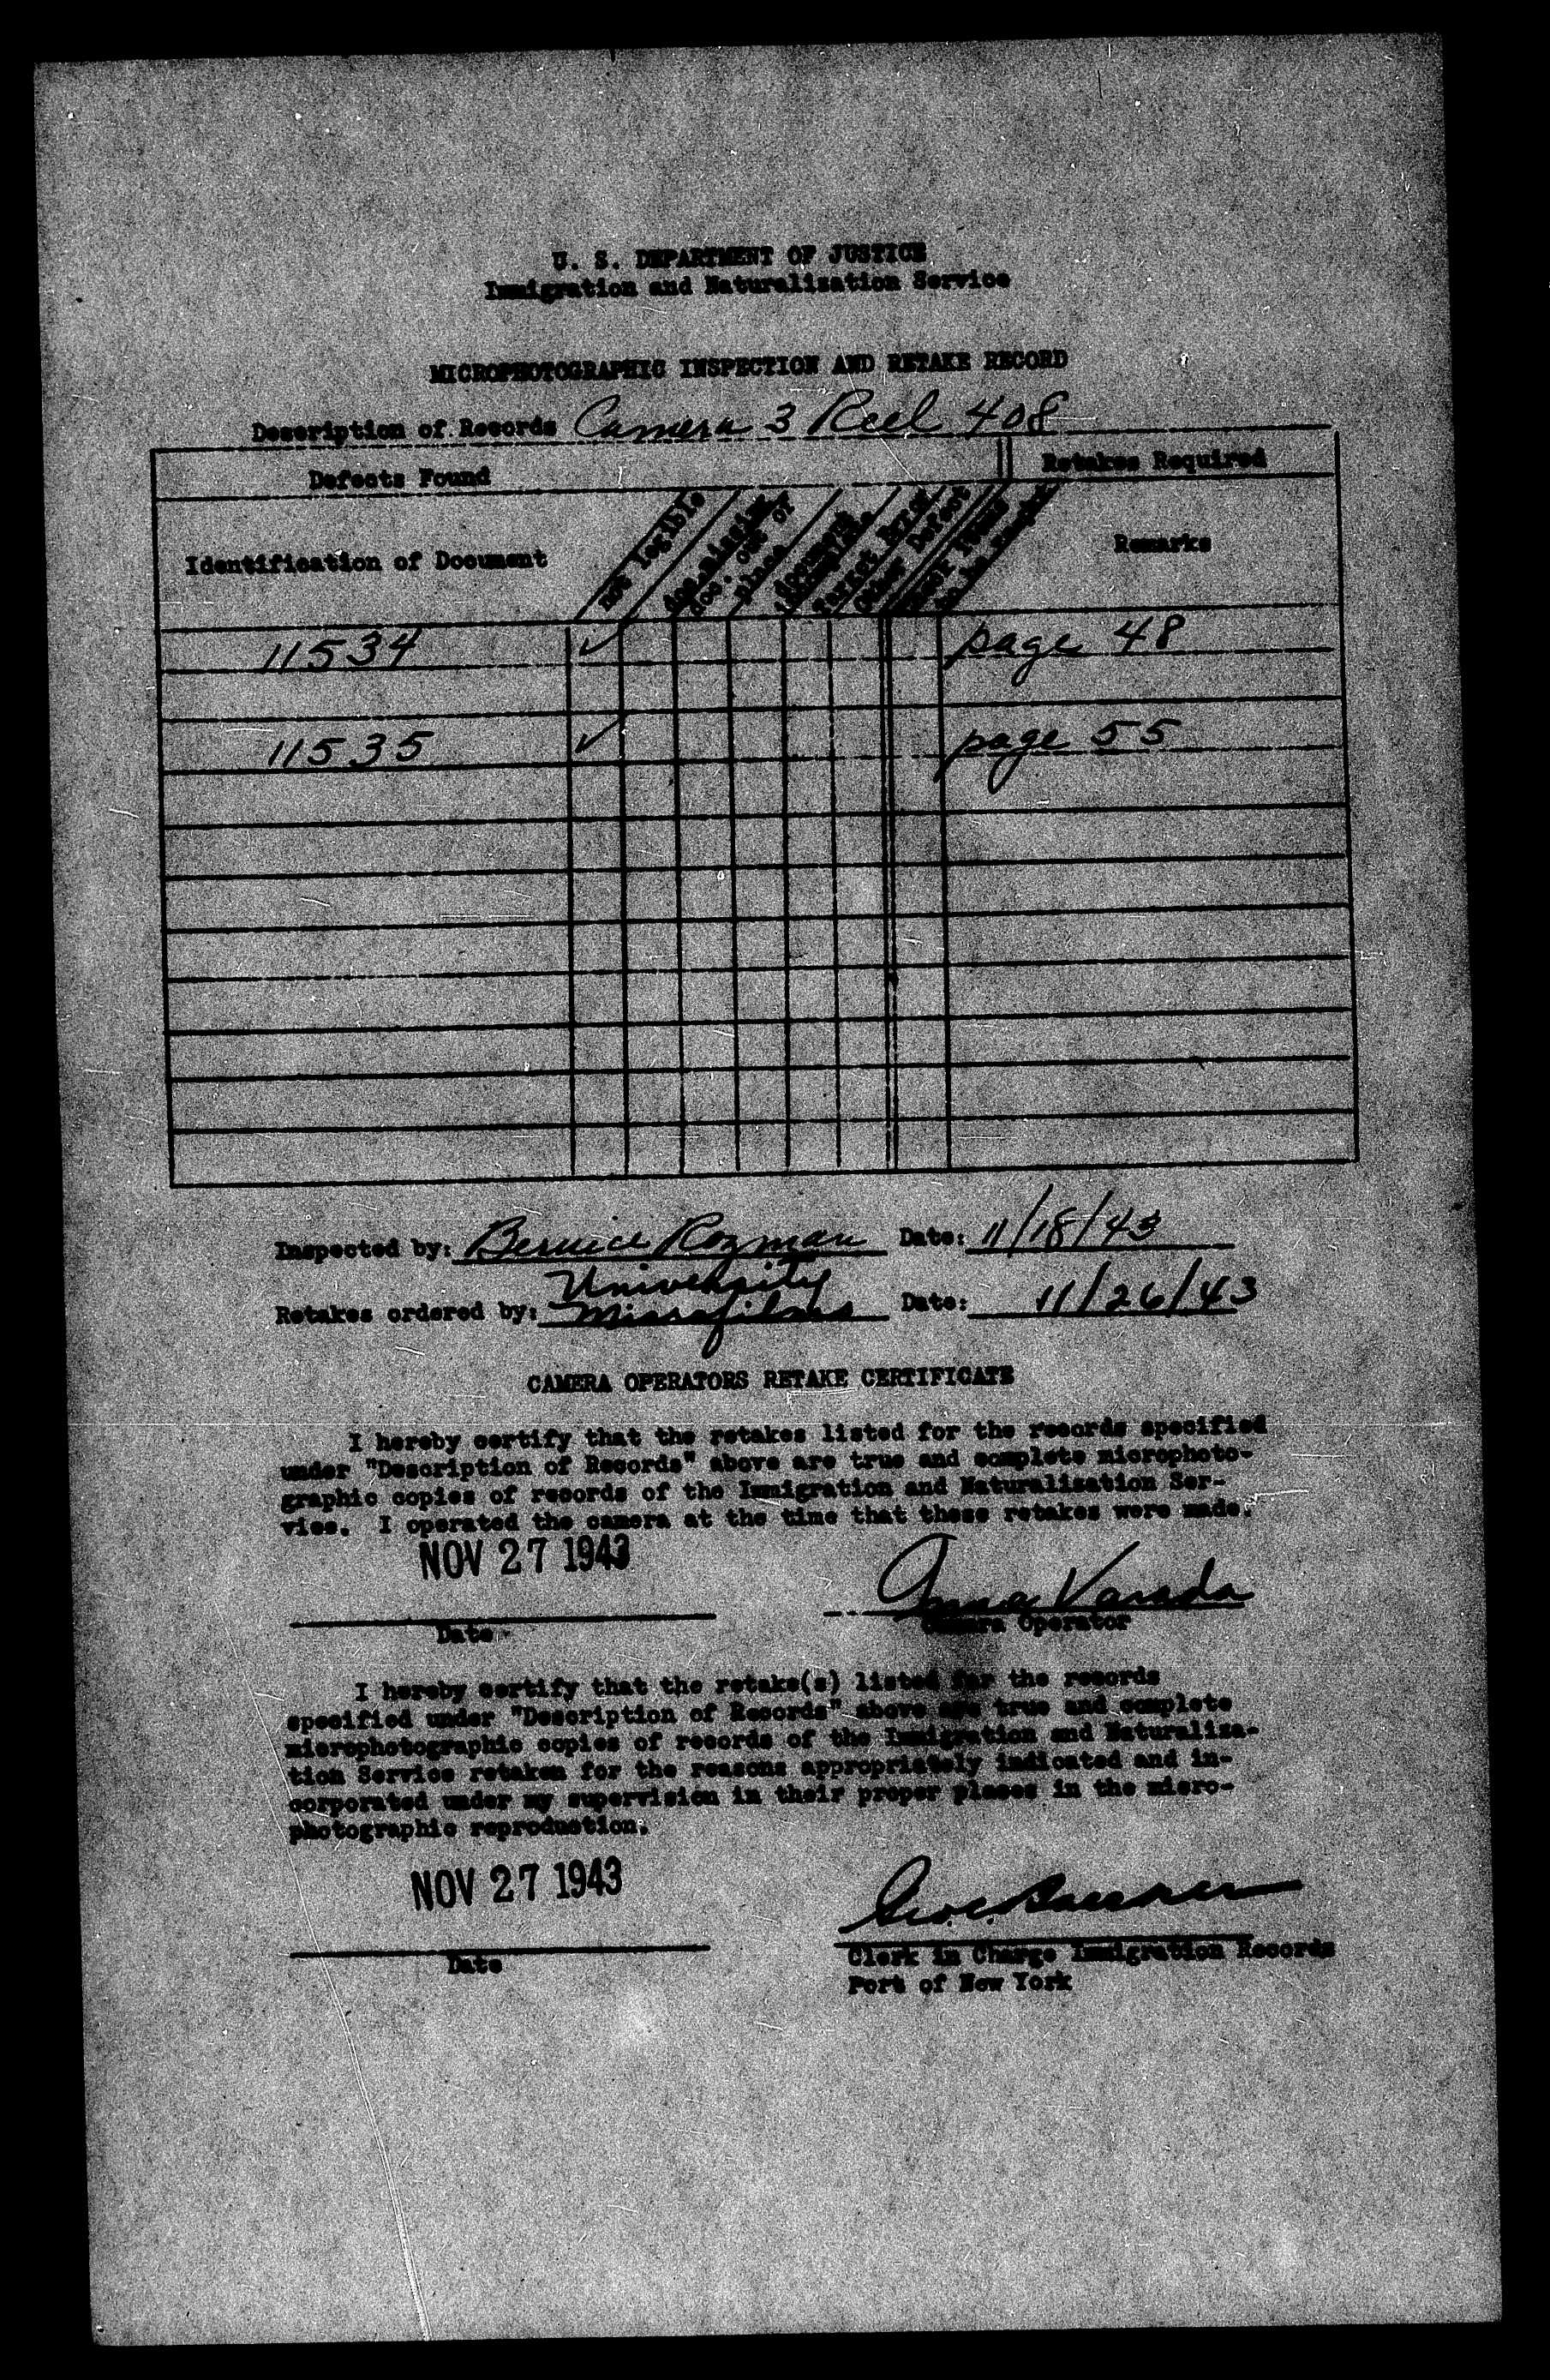 U. S. DEPARTMENT OF JUSTICE
Immigration and Naturalization Service
MICROPHOTOGRAPHIC INSPECTION AND RETAKE RECORD
Description of Records Camera 3 Reel 408
Defects Found
Retakes Required
Identification of Document
not legible
doc. missing
doc. out of
place
document
Other Defect
Remarks
11534 ✓ page 48
11535 ✓ page 55
Inspected by: Bernice Rozman Date: 11/18/43
University
Retakes ordered by: Microfilms Date: 11/26/43
CAMERA OPERATORS RETAKE CERTIFICATE
I hereby certify that the retakes listed for the records specified
under "Description of Records" above are true and complete microphoto-
graphic copies of records of the Immigration and Naturalization Ser-
vice. I operated the camera at the time that these retakes were made.
NOV 27 1943
Anna Varada
Date
Camera Operator
I hereby certify that the retake(s) listed for the records
specified under "Description of Records" above are true and complete
microphotographic copies of records of the Immigration and Naturaliza-
tion Service retaken for the reasons appropriately indicated and in-
corporated under my supervision in their proper places in the micro-
photographic reproduction.
NOV 27 1943
Date
Clerk in Charge Immigration Records
Port of New York